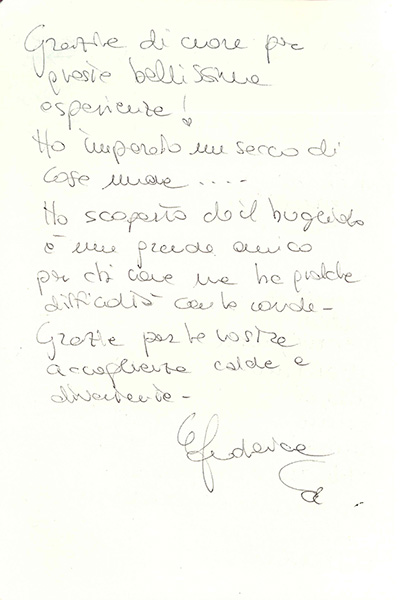 Grazie di cuore per
questa bellissima
esperienza!
Ho imparato un sacco di
cose nuove ....
Ho scoperto che il
è un grande amico
per chi come me ha qualche
difficoltà con le corde -
Grazie per la vostra
accoglienza calda e
divertente -
Federica